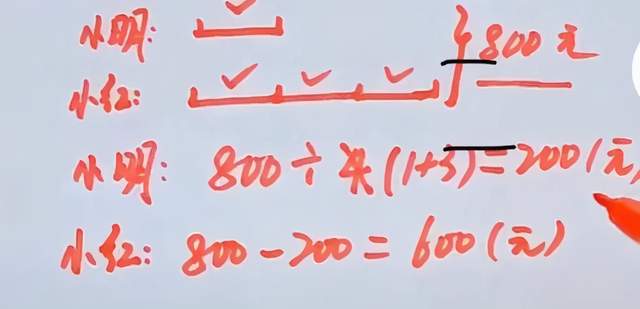 小明: 800元
小红:
小明: 800÷(1+3)=200(元
小红: 800-200=600(元)